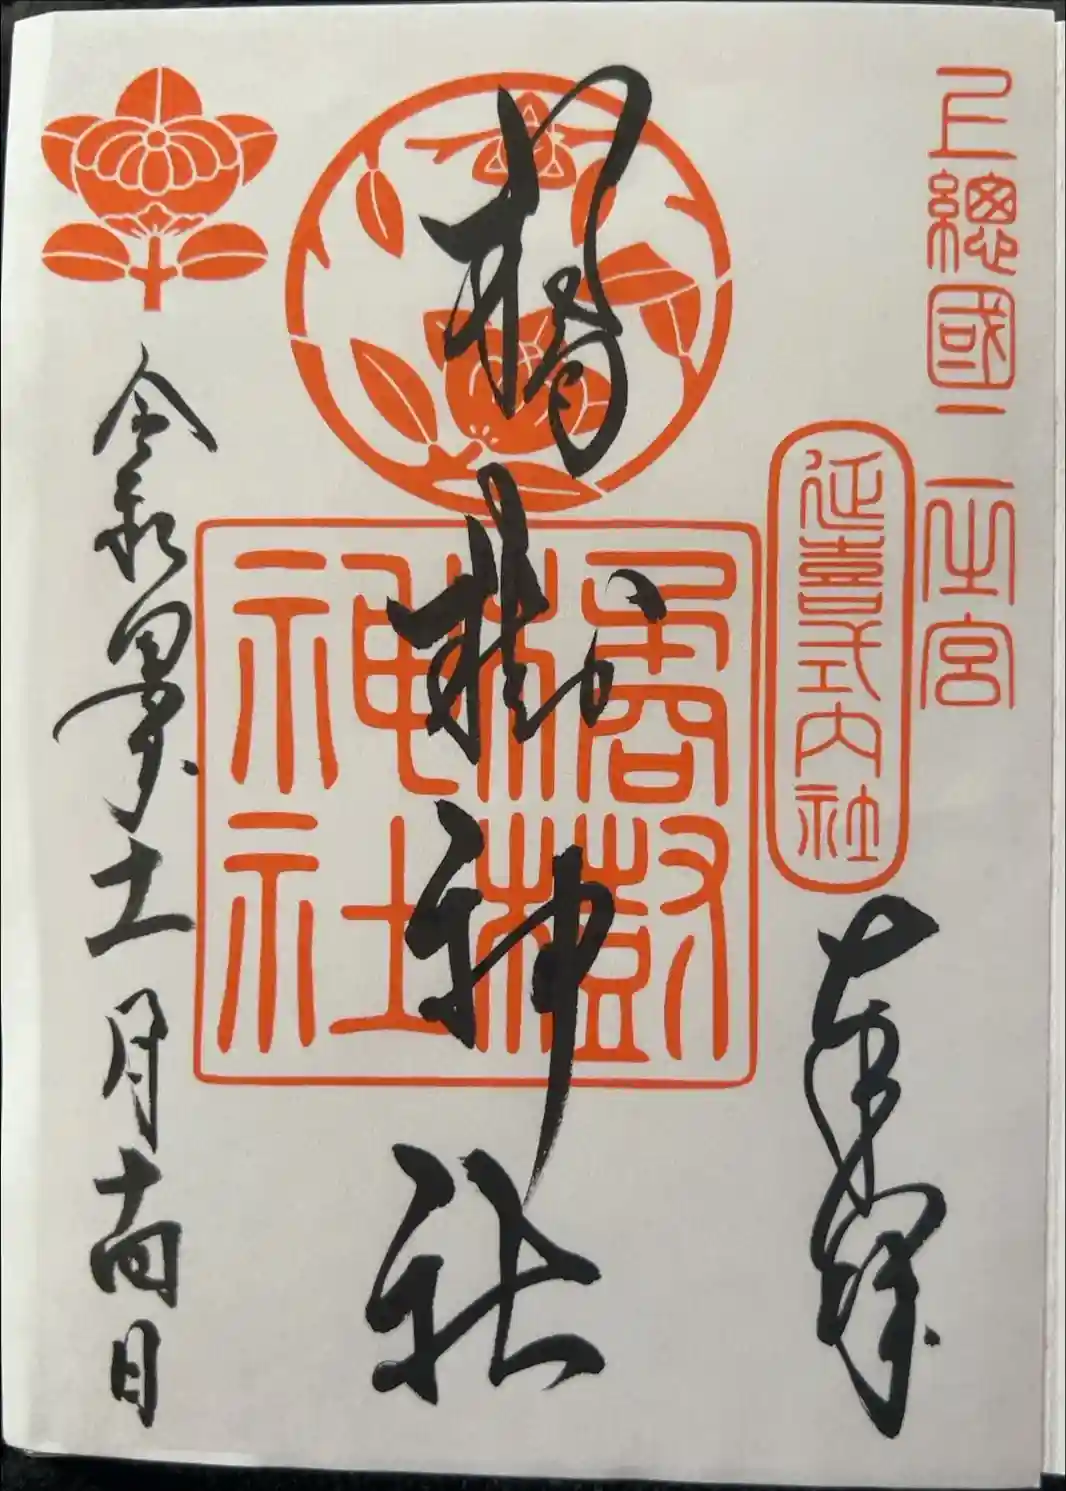 上總國二之宮
延喜式内社
奉拝
橘樹神社
橘樹神社
令和四年十一月十四日